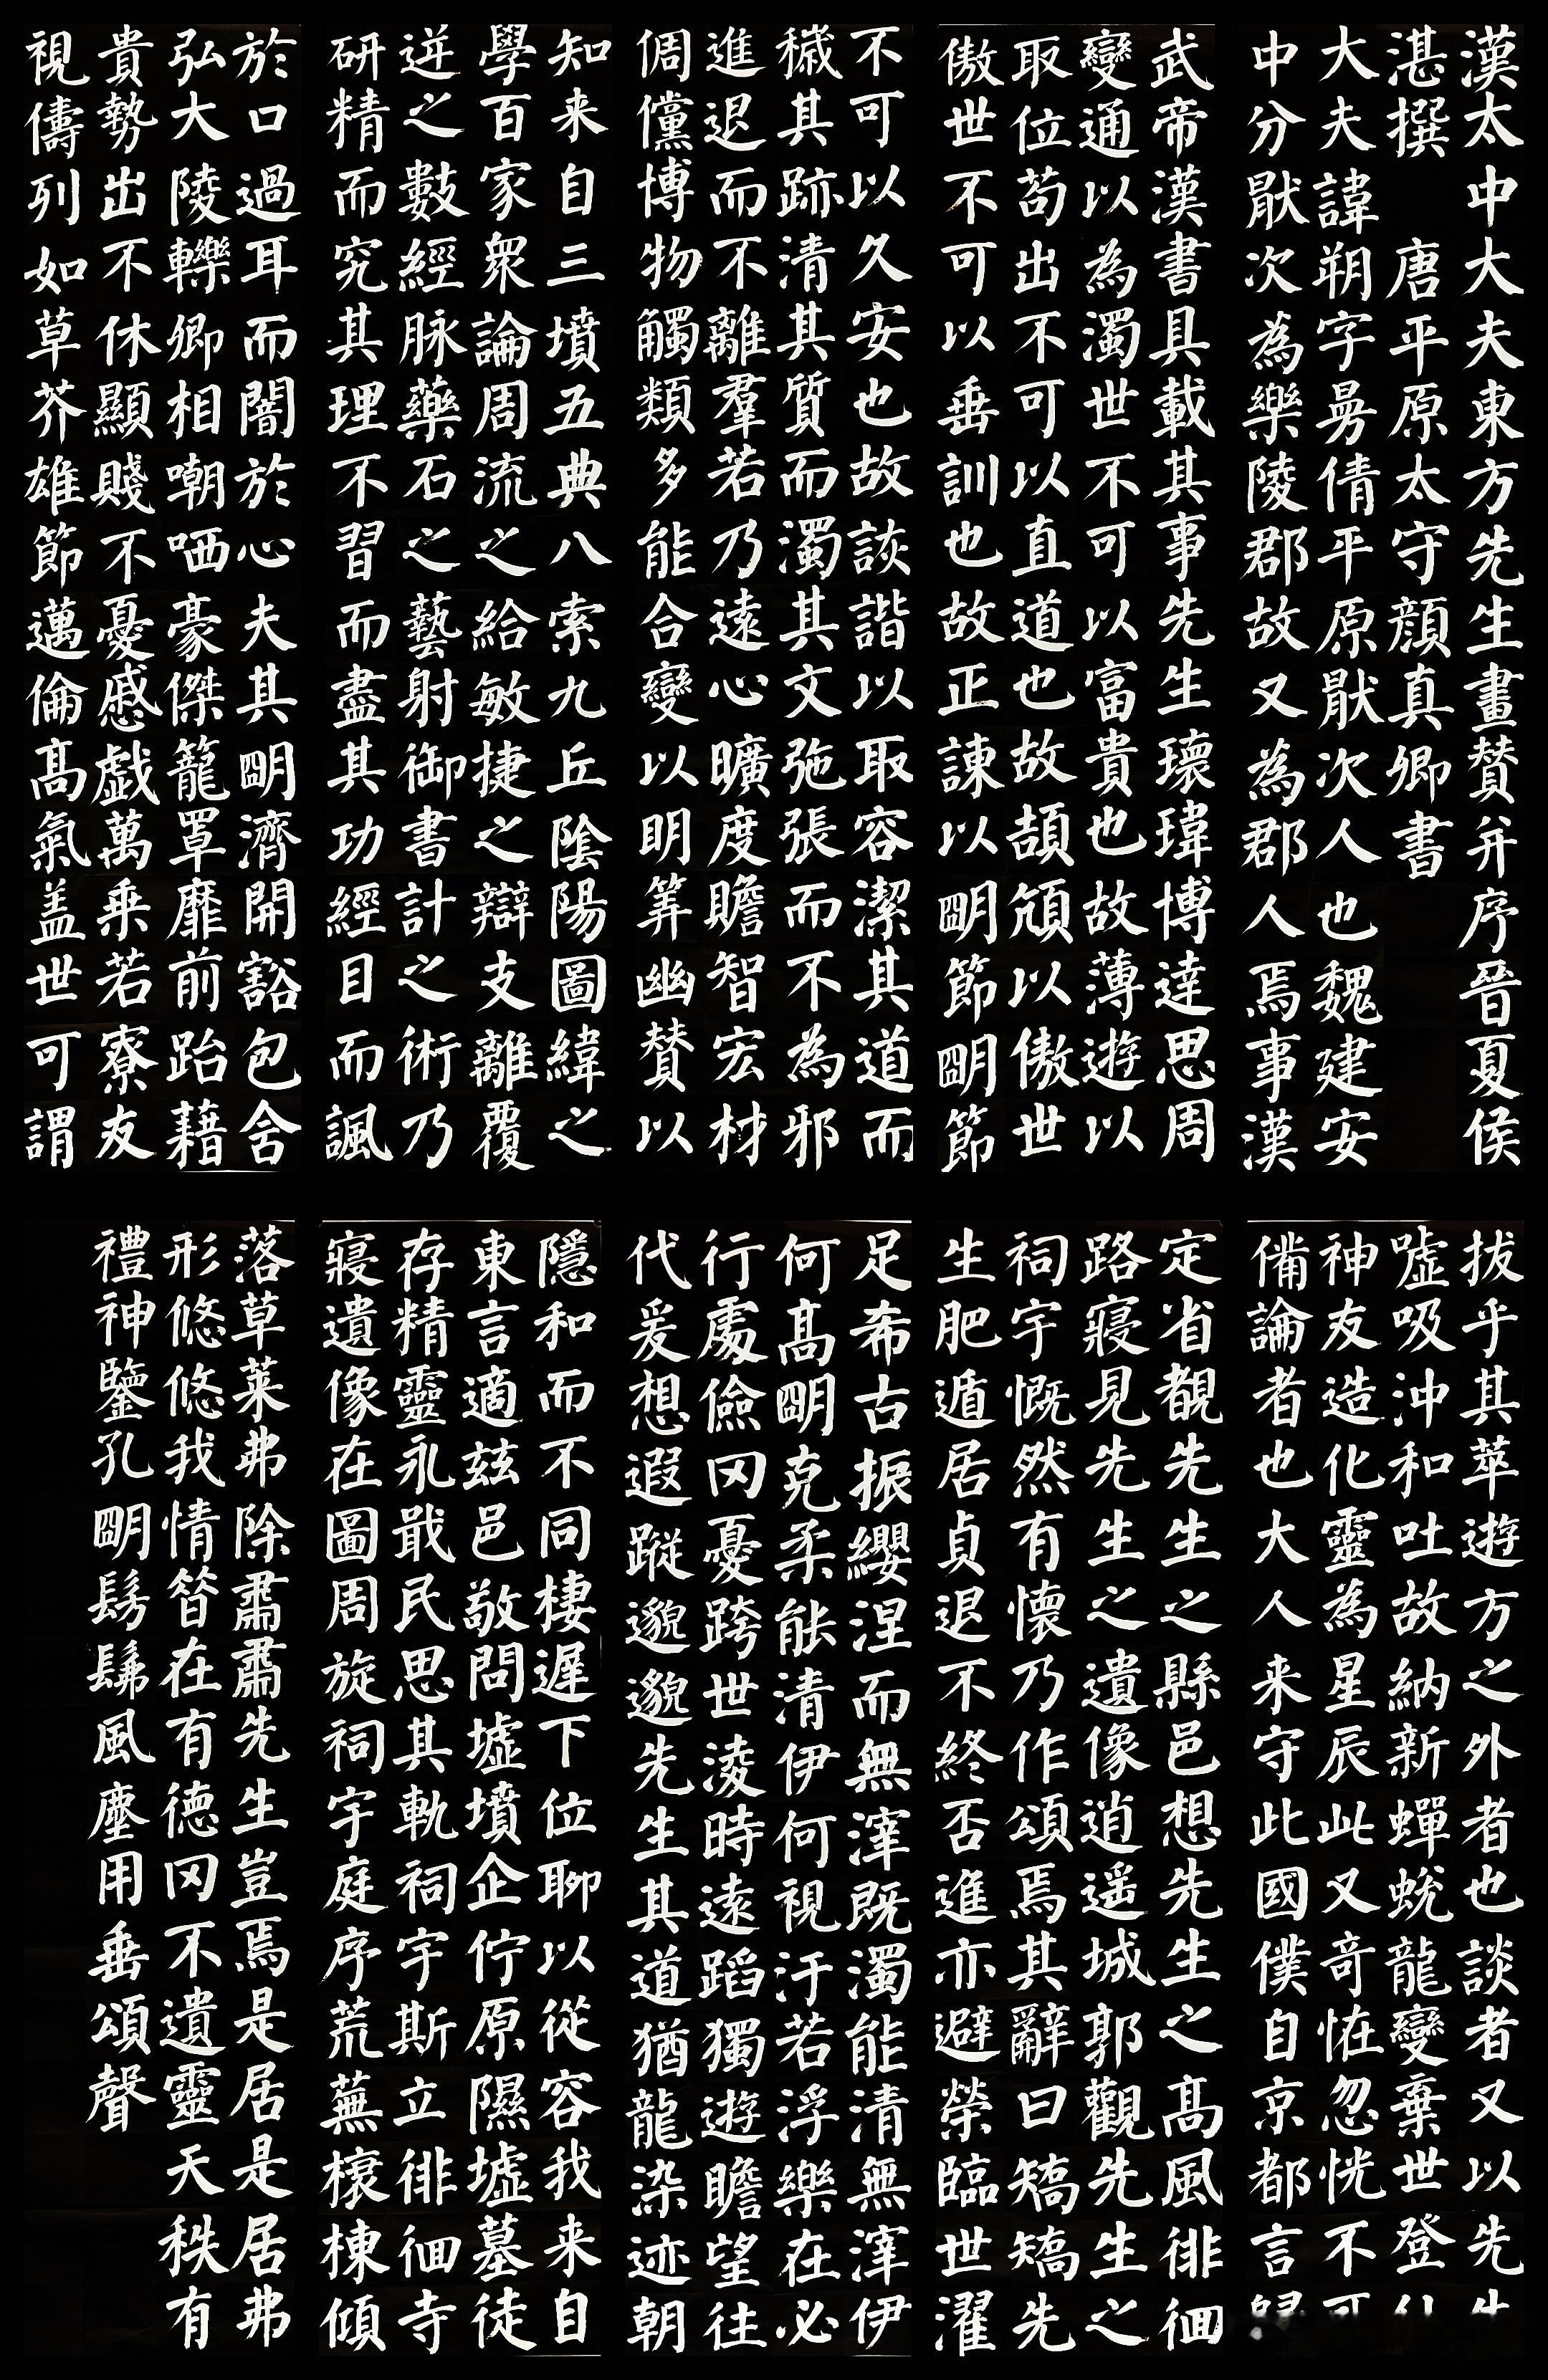 漢太中大夫東方先生畫賛并序晉夏侯
湛撰 唐平原太守顔真卿書
大夫諱朔字曼倩平原厭次人也魏建安
中分厭次為樂陵郡故又為郡人焉事漢
武帝漢書具載其事先生瓌瑋博達思周
變通以為濁世不可以富貴也故薄遊以
取位苟出不可以直道也故頡頏以傲世
傲世不可以垂訓也故正諫以明節明節
不可以久安也故詼諧以取容潔其道而
穢其跡清其質而濁其文弛張而不為邪
進退而不離羣若乃遠心曠度贍智宏材
倜儻博物觸類多能合變以明筭幽賛以
知来自三墳五典八索九丘陰陽圖緯之
學百家衆論周流之給敏捷之辯支離覆
逆之數經脉藥石之藝射御書計之術乃
研精而究其理不習而盡其功經目而諷
於口過耳而闇於心夫其明濟開豁包含
弘大陵轢卿相嘲哂豪傑籠罩靡前跆藉
貴勢出不休顯賤不憂慼戲萬乘若寮友
視儔列如草芥雄節邁倫高氣盖世可謂
拔乎其萃遊方之外者也談者又以先
噓吸沖和吐故納新蟬蛻龍變棄世登
神友造化靈為星辰此又奇恠忽恍不
備論者也大人来守此國僕自京都言
定省覩先生之縣邑想先生之高風徘徊
路寢見先生之遺像逍遥城郭觀先生之
祠宇慨然有懷乃作頌焉其辭曰矯矯先
生肥遁居貞退不終否進亦避榮臨世濯
足希古振纓涅而無滓既濁能清無滓伊
何高明克柔能清伊何視汙若浮樂在必
行處儉罔憂跨世淩時遠蹈獨遊瞻望往
代爰想遐蹤邈邈先生其道猶龍染迹朝
隱和而不同棲遲下位聊以從容我来自
東言適茲邑敬問墟墳企佇原隰墟墓徒
存精靈永戢民思其軌祠宇斯立徘徊寺
寢遺像在圖周旋祠宇庭序荒蕪榱棟傾
落草莱弗除肅肅先生豈焉是居是居弗
形悠悠我情昔在有德罔不遺靈天秩有
禮神鑒孔明髣髴風塵用垂頌聲